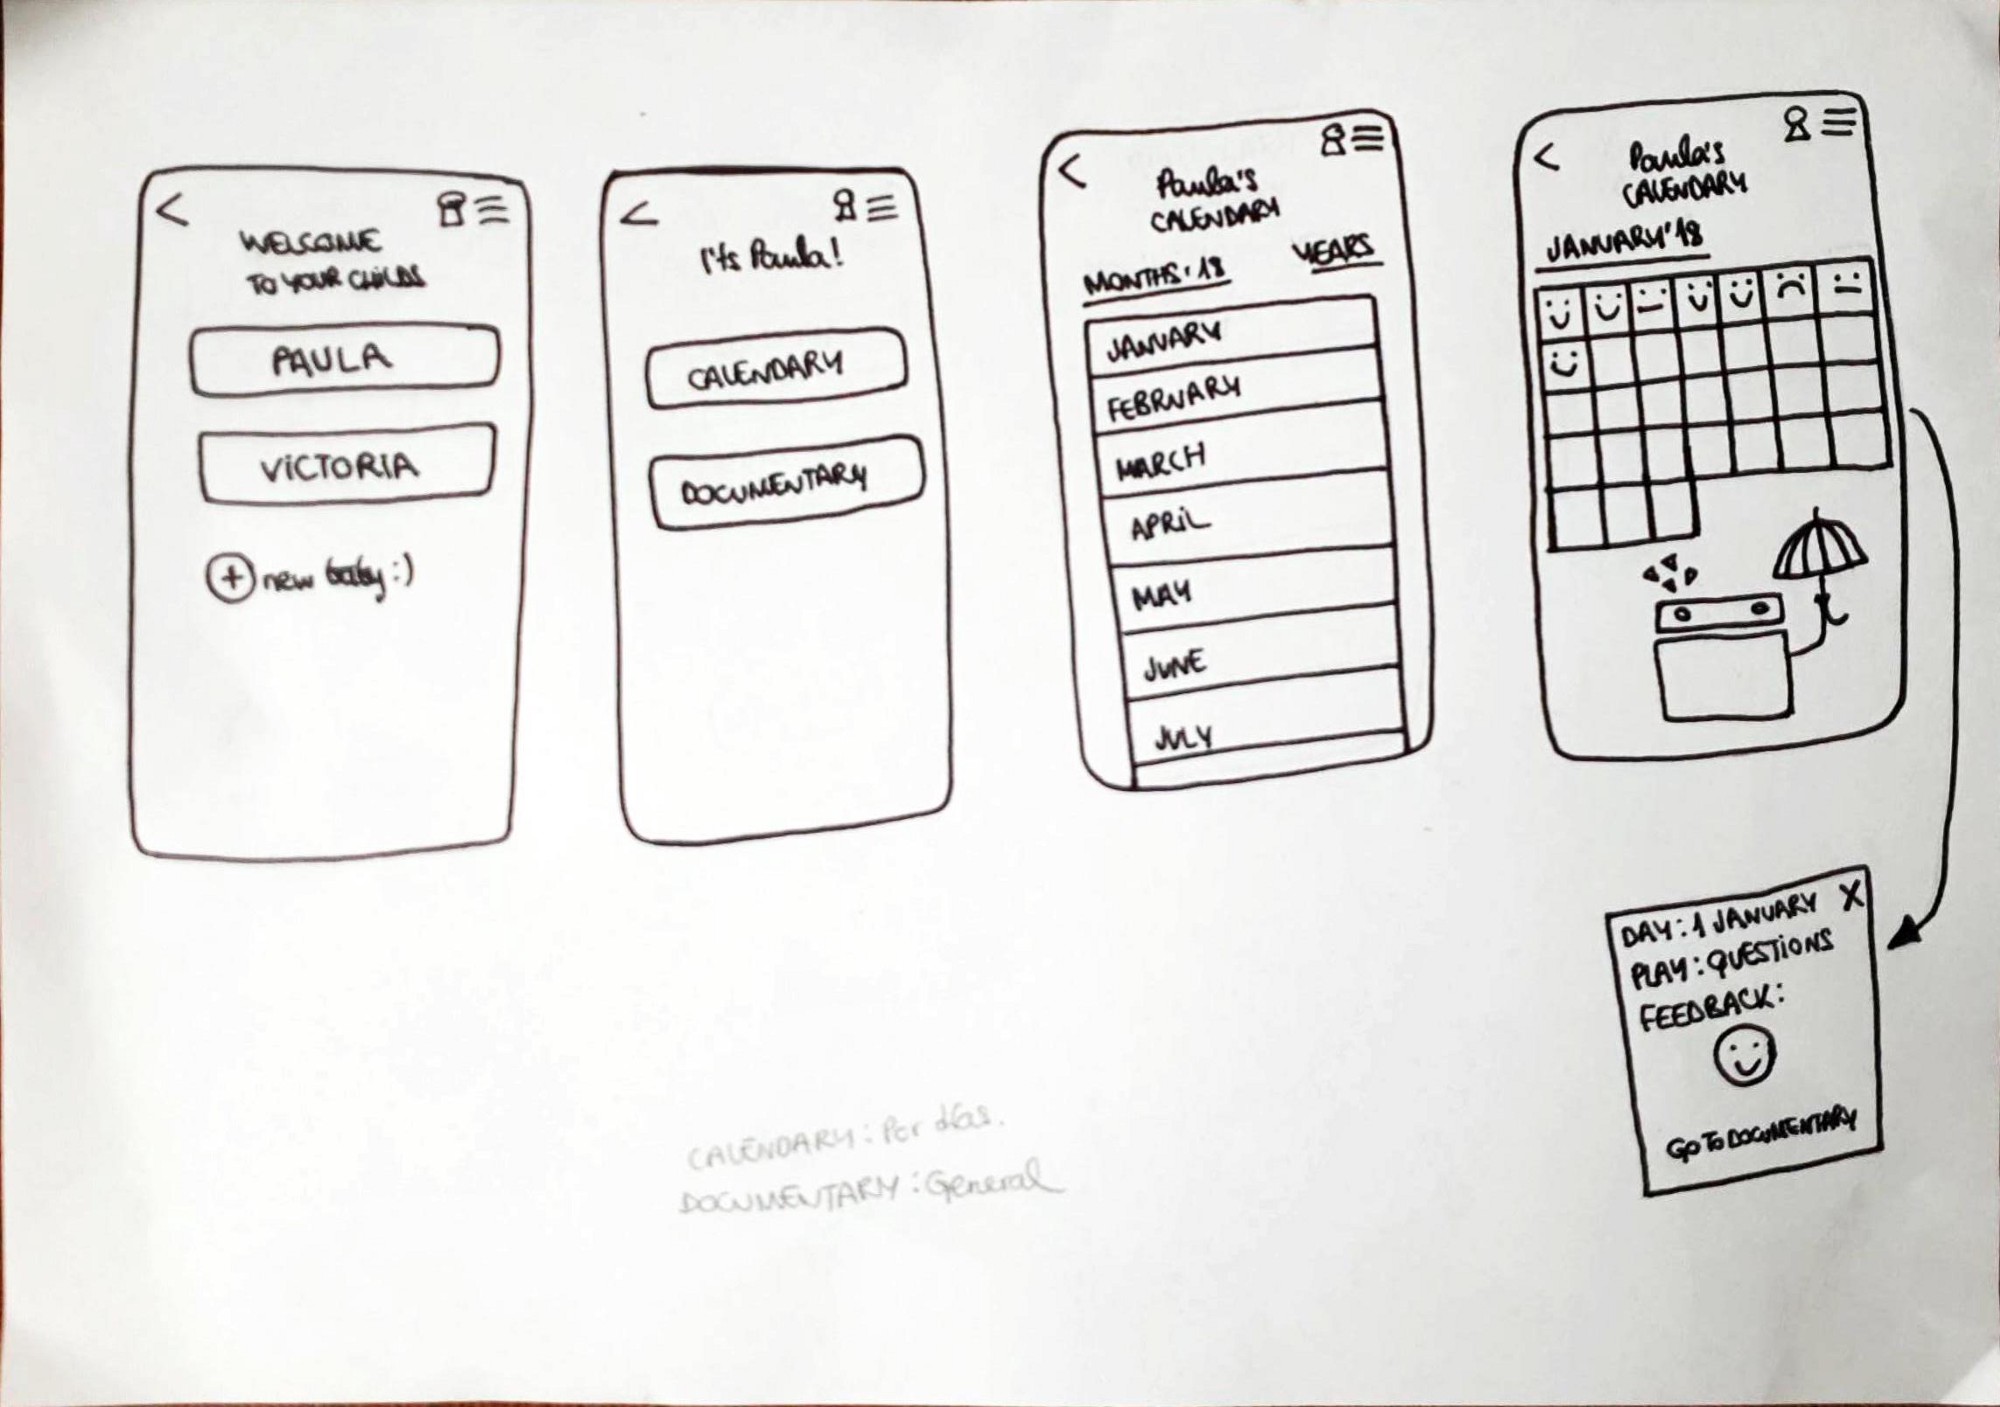 WELCOME
TO YOUR CHILDS
PAULA
VICTORIA
+ new baby :)
It's Paula!
CALENDARY
DOCUMENTARY
Paula's
CALENDARY
MONTHS '18
YEARS
JANUARY
FEBRUARY
MARCH
APRIL
MAY
JUNE
JULY
Paula's
CALENDARY
JANUARY '18
DAY: 1 JANUARY X
PLAY: QUESTIONS
FEEDBACK:
GO TO DOCUMENTARY
CALENDARY: Por días.
DOCUMENTARY: General